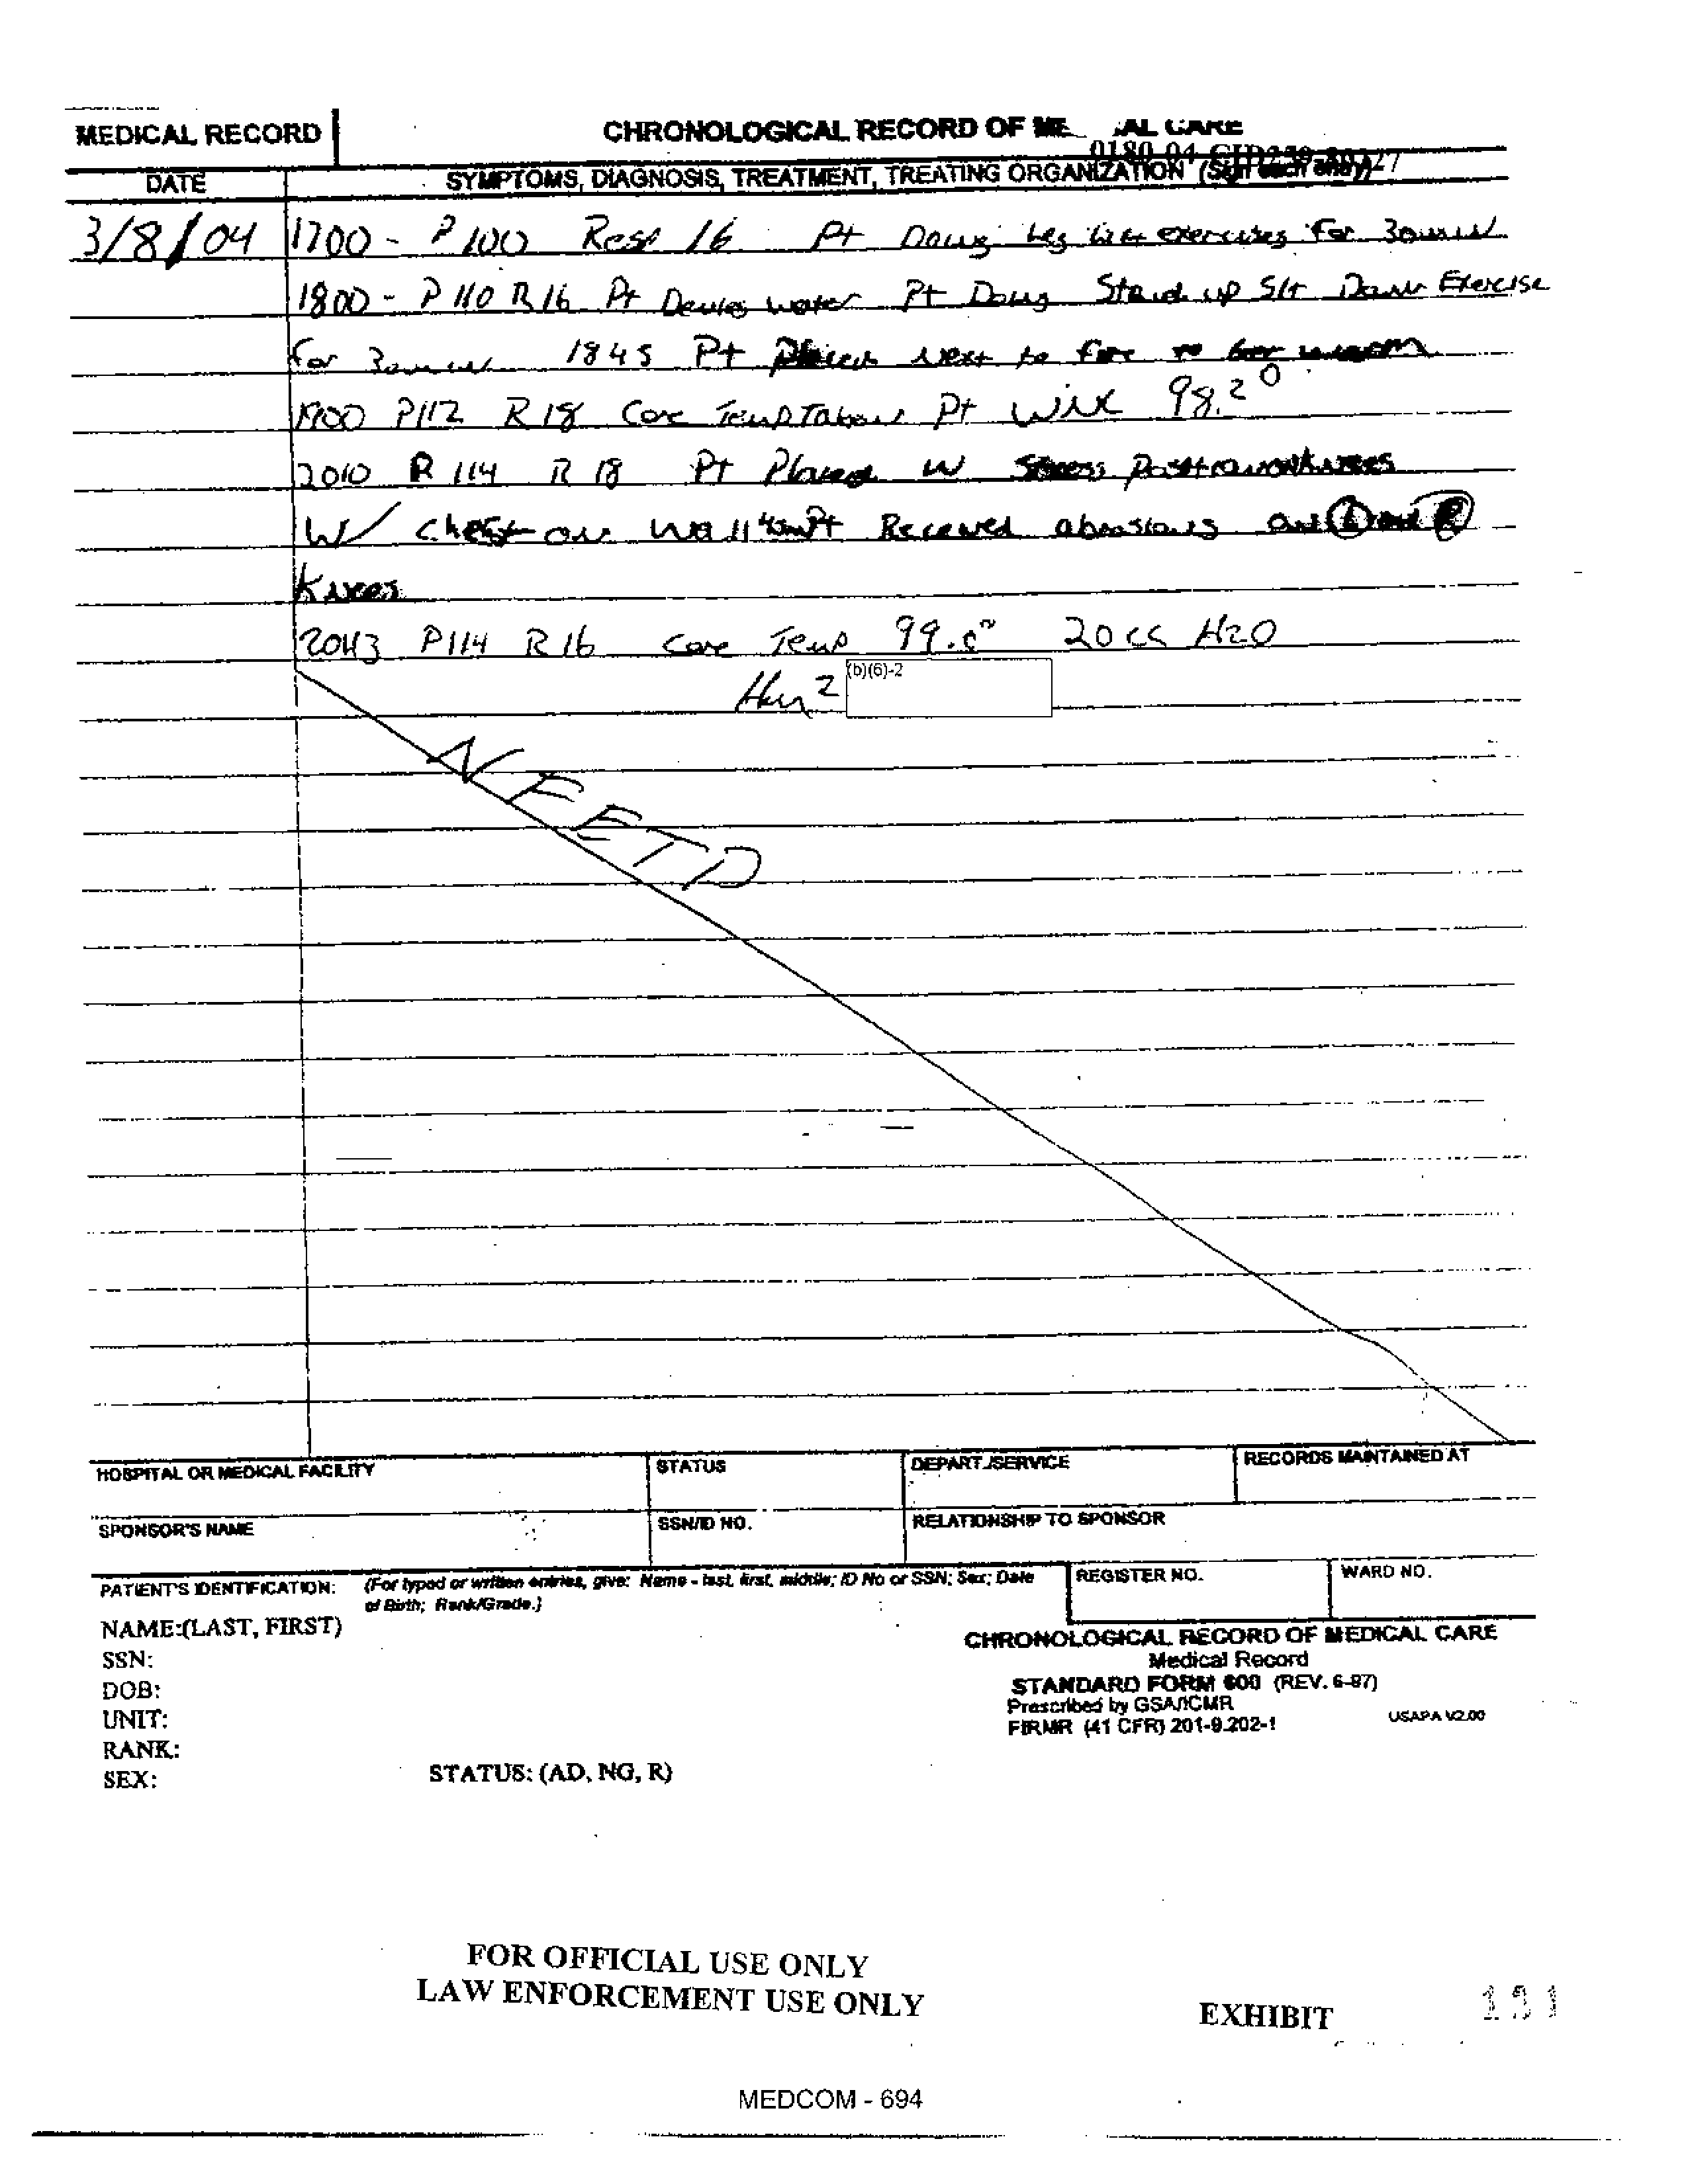 MEDICAL RECORD
CHRONOLOGICAL RECORD OF ME AL CARE
0180-04-
DATE
SYMPTOMS, DIAGNOSIS, TREATMENT, TREATING ORGANIZATION (Sign each entry)
3/8/04 1700 - P 100 Resp 16 Pt Doing leg lift exercises for 30 min
1800 - P 110 R 16 Pt Denies water Pt Doing Stand up Sit Down Exercise
for 30 min 1845 Pt Placed Next to fire to warm
1900 P112 R 18 Core Temp Taken Pt 98.2°
2010 R 114 R 18 Pt Placed Stress Position on Knees
w/ Chest on Wall 45min Pt Received abrasions on (L) and (R)
Knees
2043 P114 R 16 Core Temp 20 cc H2O
(b)(6)-2
HOSPITAL OR MEDICAL FACILITY
STATUS
DEPART./SERVICE
RECORDS MAINTAINED AT
SPONSOR'S NAME
SSN/ID NO.
RELATIONSHIP TO SPONSOR
PATIENT'S IDENTIFICATION: (For typed or written entries, give: Name - last, first, middle; ID No or SSN; Sex; Date
of Birth; Rank/Grade.)
REGISTER NO.
WARD NO.
NAME:(LAST, FIRST)
SSN:
DOB:
UNIT:
RANK:
SEX:
STATUS: (AD, NG, R)
CHRONOLOGICAL RECORD OF MEDICAL CARE
Medical Record
STANDARD FORM 600 (REV. 6-97)
Prescribed by GSA/ICMR
FIRMR (41 CFR) 201-9.202-1
USAPA V2.00
FOR OFFICIAL USE ONLY
LAW ENFORCEMENT USE ONLY
EXHIBIT
MEDCOM - 694